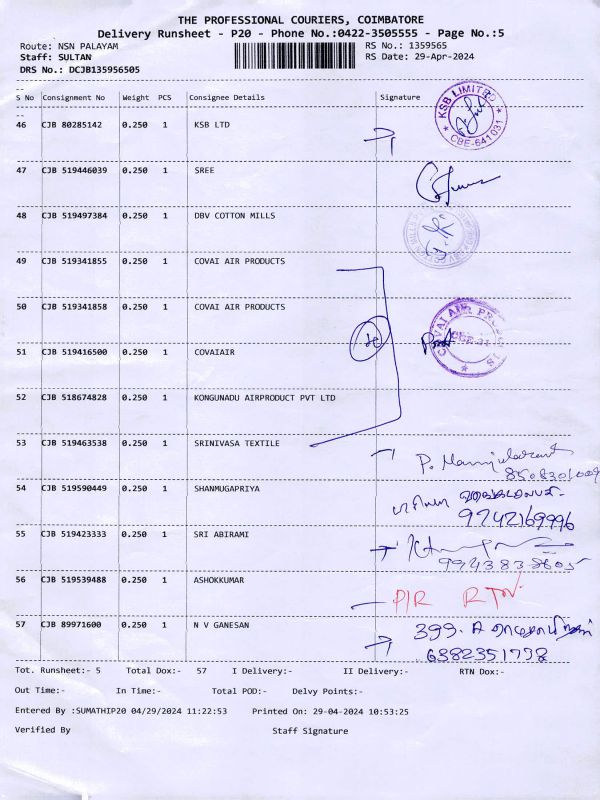 THE PROFESSIONAL COURIERS, COIMBATORE
Delivery Runsheet - P20 - Phone No.:0422-3505555 - Page No.:5
Route: NSN PALAYAM RS No.: 1359565
Staff: SULTAN RS Date: 29-Apr-2024
DRS No.: DCJB135956505
--
S No Consignment No Weight PCS Consignee Details Signature
--
46 CJB 80285142 0.250 1 KSB LTD
KSB LIMITED
CBE-641031
47 CJB 519446039 0.250 1 SREE
48 CJB 519497384 0.250 1 DBV COTTON MILLS
49 CJB 519341855 0.250 1 COVAI AIR PRODUCTS
50 CJB 519341858 0.250 1 COVAI AIR PRODUCTS
COVAI AIR
51 CJB 519416500 0.250 1 COVAIAIR
52 CJB 518674828 0.250 1 KONGUNADU AIRPRODUCT PVT LTD
53 CJB 519463538 0.250 1 SRINIVASA TEXTILE
54 CJB 519590449 0.250 1 SHANMUGAPRIYA
9742169996
55 CJB 519423333 0.250 1 SRI ABIRAMI
56 CJB 519539488 0.250 1 ASHOKKUMAR
P/R RTN.
57 CJB 89971600 0.250 1 N V GANESAN
399. A
6382351798
Tot. Runsheet:- 5 Total Dox:- 57 I Delivery:- II Delivery:- RTN Dox:-
Out Time:- In Time:- Total POD:- Delvy Points:-
Entered By :SUMATHIP20 04/29/2024 11:22:53 Printed On: 29-04-2024 10:53:25
Verified By Staff Signature